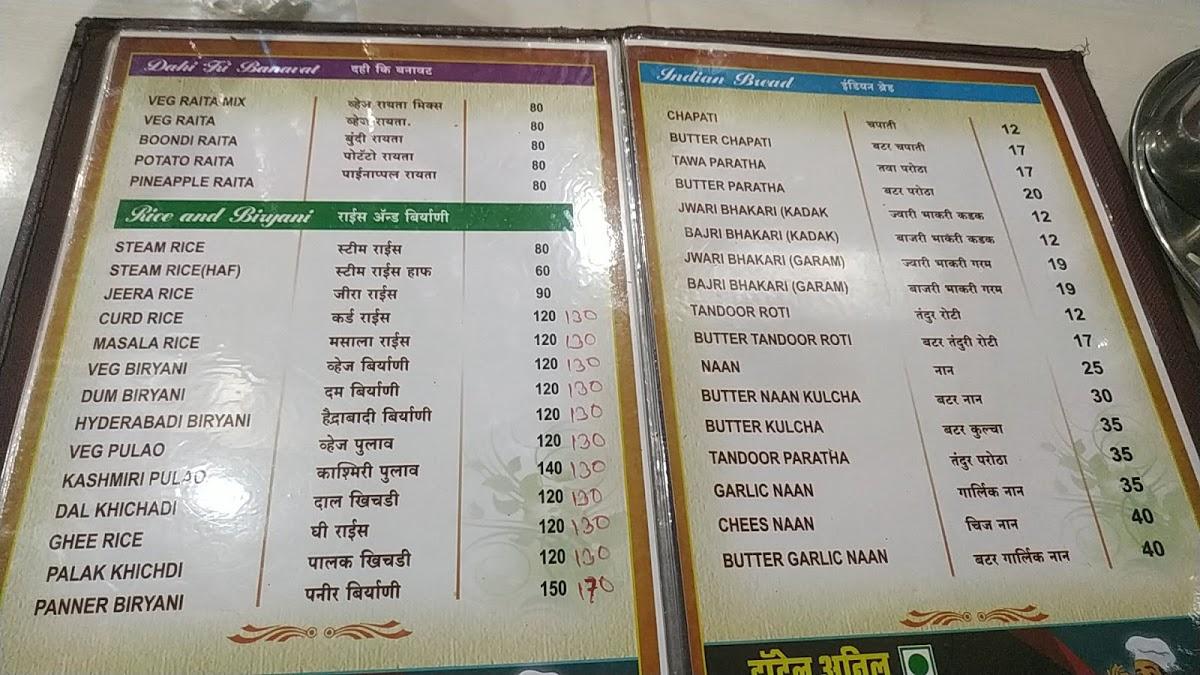 Dahi Ki Banavat दही कि बनावट
VEG RAITA MIX व्हेज रायता मिक्स 80
VEG RAITA व्हेज रायता. 80
BOONDI RAITA बुंदी रायता 80
POTATO RAITA पोटॅटो रायता 80
PINEAPPLE RAITA पाईनाप्पल रायता 80
Rice and Biryani राईस ॲन्ड बिर्याणी
STEAM RICE स्टीम राईस 80
STEAM RICE(HAF) स्टीम राईस हाफ 60
JEERA RICE जीरा राईस 90
CURD RICE कर्ड राईस 120 130
MASALA RICE मसाला राईस 120 130
VEG BIRYANI व्हेज बिर्याणी 120 130
DUM BIRYANI दम बिर्याणी 120 130
HYDERABADI BIRYANI हैद्राबादी बिर्याणी 120 130
VEG PULAO व्हेज पुलाव 120 130
KASHMIRI PULAO काश्मिरी पुलाव 140 130
DAL KHICHADI दाल खिचडी 120 130
GHEE RICE घी राईस 120 130
PALAK KHICHDI पालक खिचडी 120 130
PANNER BIRYANI पनीर बिर्याणी 150 170
Indian Bread इंडियन ब्रेड
CHAPATI चपाती 12
BUTTER CHAPATI बटर चपाती 17
TAWA PARATHA तवा परोठा 17
BUTTER PARATHA बटर परोठा 20
JWARI BHAKARI (KADAK ज्वारी भाकरी कडक 12
BAJRI BHAKARI (KADAK) बाजरी भाकरी कडक 12
JWARI BHAKARI (GARAM) ज्वारी भाकरी गरम 19
BAJRI BHAKARI (GARAM) बाजरी भाकरी गरम 19
TANDOOR ROTI तंदुर रोटी 12
BUTTER TANDOOR ROTI बटर तंदुरी रोटी 17
NAAN नान 25
BUTTER NAAN KULCHA बटर नान 30
BUTTER KULCHA बटर कुल्चा 35
TANDOOR PARATHA तंदुर परोठा 35
GARLIC NAAN गार्लिक नान 35
CHEES NAAN चिज नान 40
BUTTER GARLIC NAAN बटर गार्लिक नान 40
हॉटेल अनिल